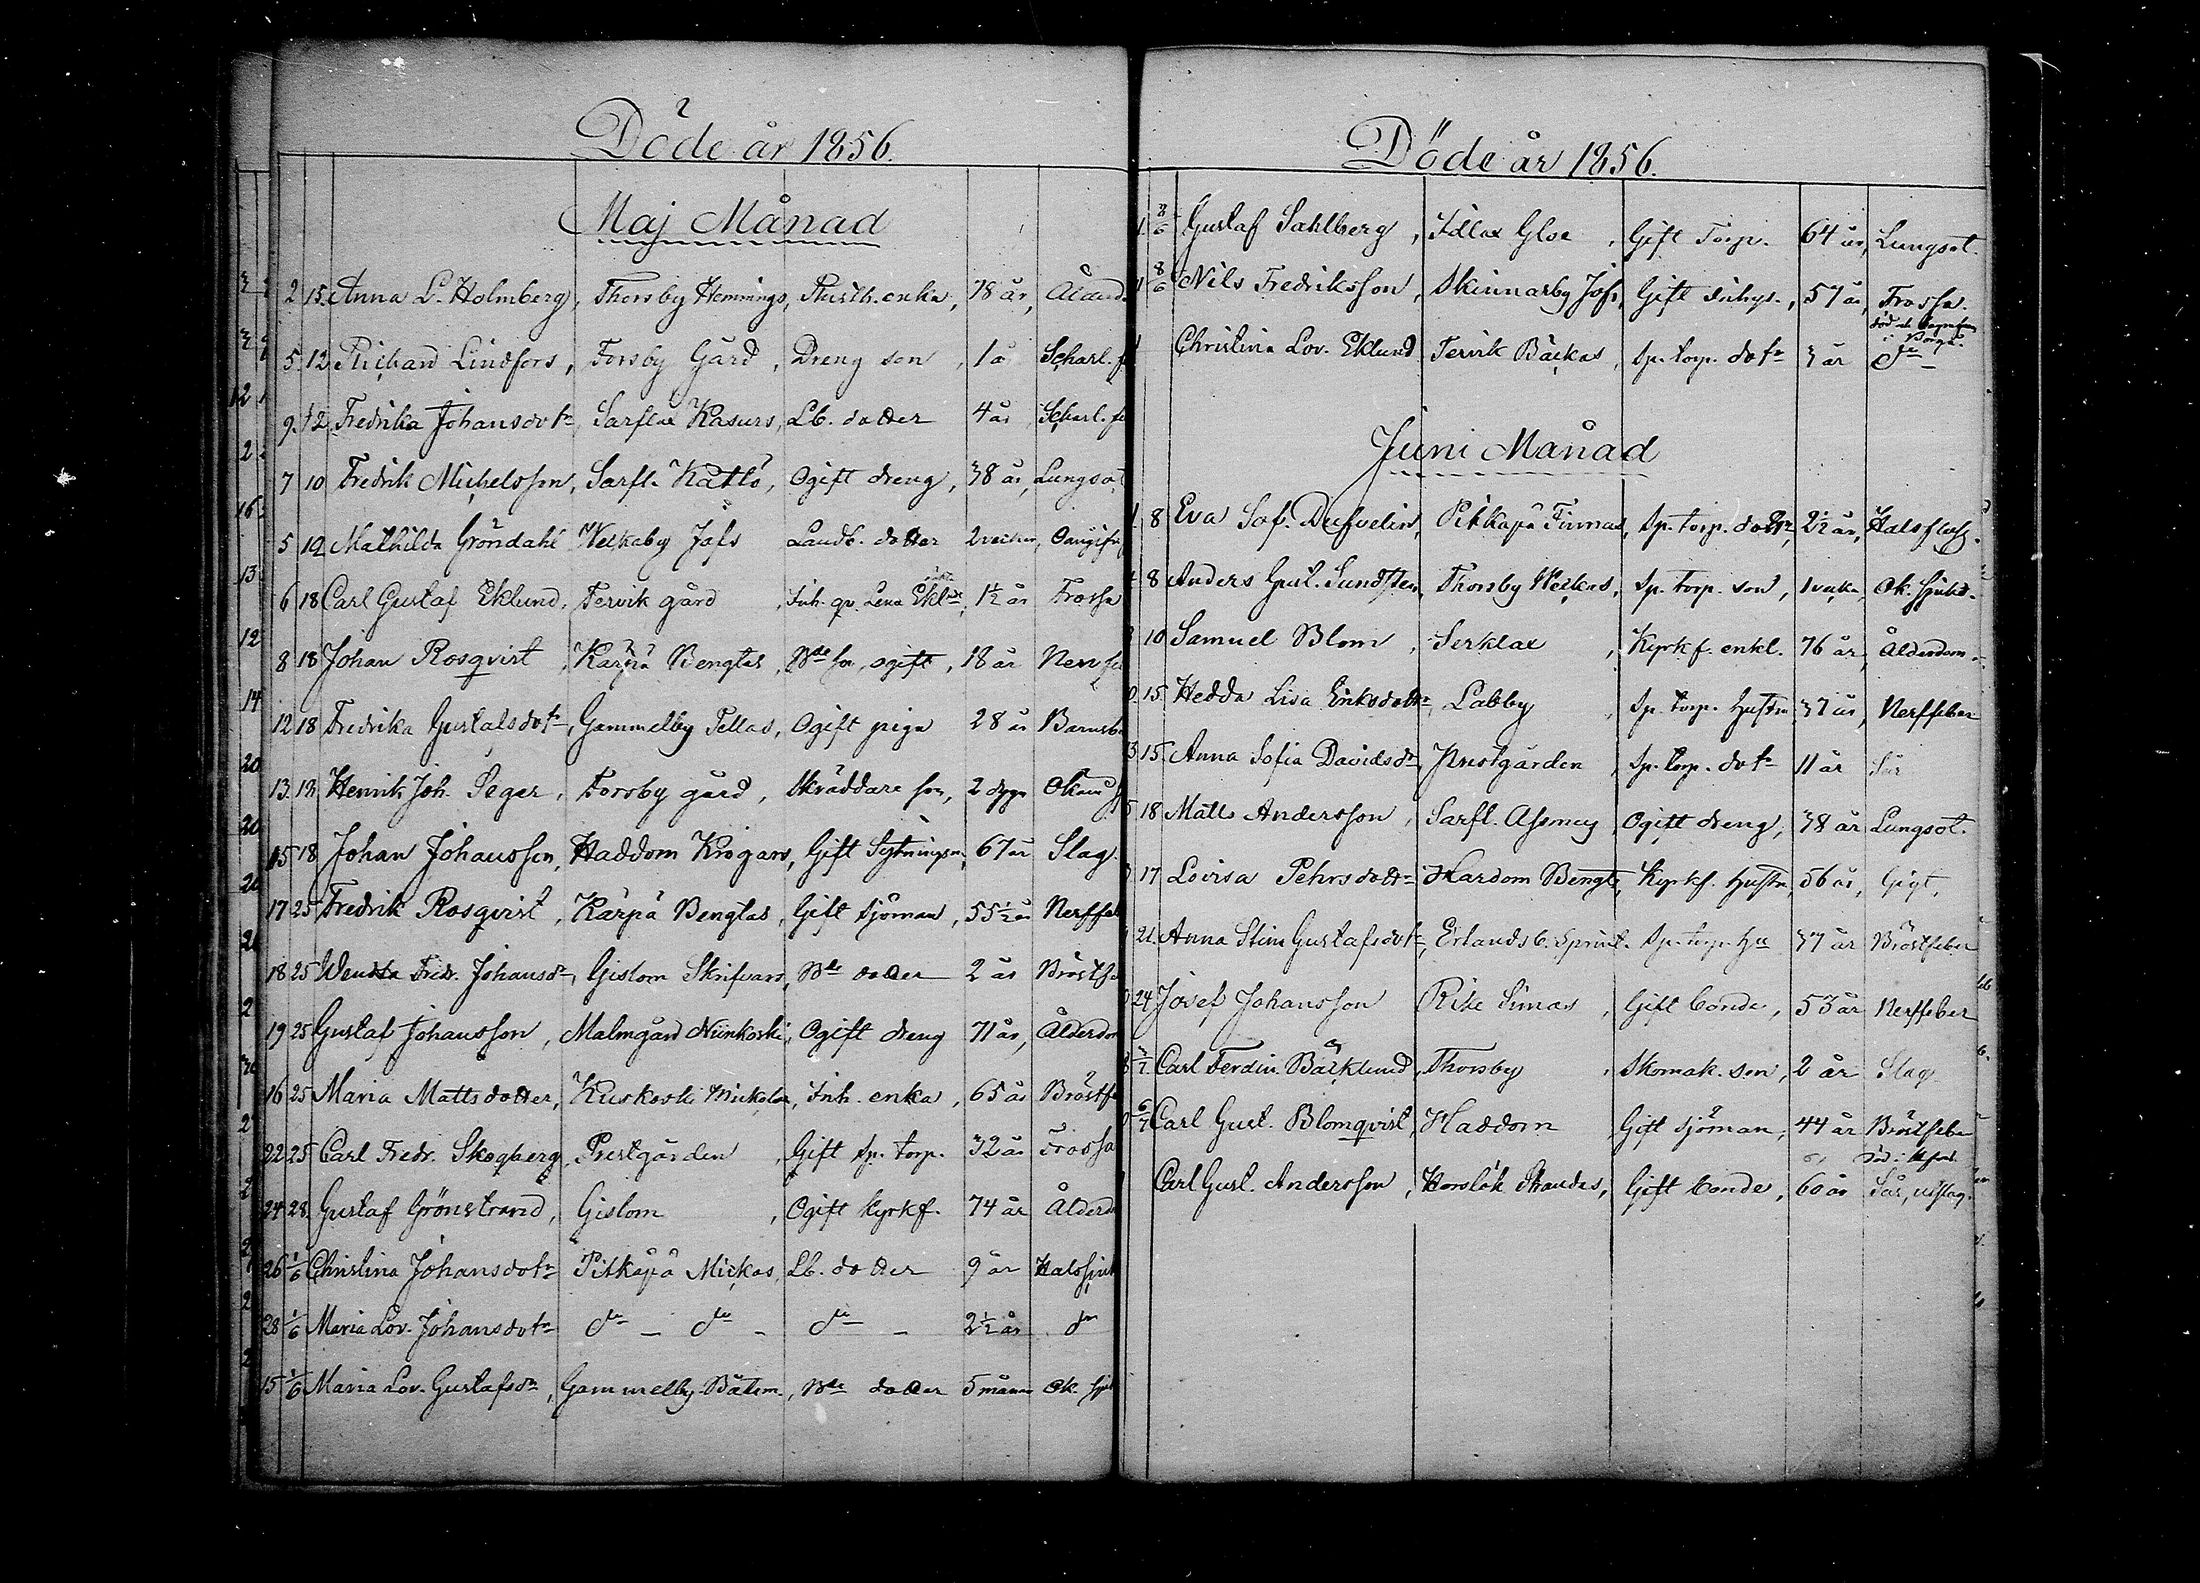 Döde år 1856.
Maj Månad
2 15. Anna L. Holmberg, Thorsby Hemmings, Rustb. enka, 78 år, Ålderd
5. 12 Richard Lindfors, Forsby Gård, Dreng son, 1 år Scharl. f
9. 12 Fredrika Johansdotr Sarflax Kasurs, Lb. dotter 4 år Scharl. fe
7 10 Fredrik Michelsson, Sarfl. Kätlö, Ogift dreng, 38 år, Lungsot
5 12 Mathilda Gröndahl Weckaby Jofs Landb. dotter 2 veckor, Oangifn
6 18 Carl Gustaf Eklund, Tervik gård, Inh. qv. Lena Ekl 1½ år Frossa
8 18 Johan Rosqvist, Kärpä Bengtas, Bde son, ogift, 18 år Nervfe
12 18 Fredrika Gustafsdotr, Gammelby Tellas, Ogift piga 28 år Barnsb
13. 18 Henrik Joh. Seger, Forsby gård, Skräddare son, 2 dygn Okänd s
15 18 Johan Johansson, Haddom Krogars, Gift Sytningsm, 67 år Slag.
17 25 Fredrik Rosqvist, Kärpä Bengtas, Gift sjöman, 55½ år Nerffeb
18 25 Wendla Fredr. Johansdr, Gislom Skrifvars, Bde dotter 2 år Bröstfe
19 25 Gustaf Johansson, Malmgård Niinkoski, Ogift dreng 71 år, Ålderdom
16 25 Maria Mattsdotter, Kuskoski Mickelas, Inh. enka, 65 år Bröstfe
22 25 Carl Fredr. Skogberg, Prestgården, Gift sp. torp. 32 år Frossa
24 28 Gustaf Grönstrand, Gislom, Ogift kyrkf. 74 år Ålderd
26 1/6 Christina Johansdotr Pitkäpä Mickas, Lb. dotter 9 år Halssjuk
28 1/6 Maria Lov. Johansdotr do - do - do - 2½ år do
15 1/6 Maria Lov. Gustafsdr, Gammelby Båtsm., Bde dotter 5 mån Ok. sjuk
Döde år 1856.
8/6 Gustaf Sahlberg, Idlax Gloe, Gift Torp. 64 år, Lungsot.
8/6 Nils Fredriksson, Skinnarby Jofs, Gift inhys., 57 år, Frossa.
död i Borgå
Christina Lov. Eklund Tervik Bäckas, Sp. torp. dotr 3 år do -
Juni Månad
8 Eva Sof. Dufvelin, Pitkäpä Finnas, Sp. torp. dottr, 2½ år, Halsfluss.
8 Anders Gust. Sundsten, Thorsby Weckas, Sp. torp. son, 1 vecka, Ok. sjukd.
10 Samuel Blom, Serklax, Kyrkf. enkl. 76 år, Ålderdom
15 Hedda Lisa Eriksdottr, Labby, Sp. torp. hustru 37 år, Nerffeber
15 Anna Sofia Davidsdr, Prestgården, Sp. torp. dotr 11 år Sår
18 Matts Andersson, Sarfl. Assmus, Ogift dreng, 38 år Lungsot.
17 Lovisa Pehrsdottr Hardom Bengts, Kyrkf. hustru, 56 år, Gigt,
21. Anna Stina Gustafsdotr, Erlandsb. Sprint. Sp. torp. hu 37 år Bröstfeber
24 Josef Johansson Rike Simas, Gift bonde, 53 år Nerffeber
3/7 Carl Ferdin. Bäcklund, Thorsby, Skomak. son, 2 år Slag
6/7 Carl Gust. Blomqvist, Haddom, Gift sjöman, 44 år Bröstfeber
Carl Gust. Andersson, Horslök Strandes, Gift bonde, 60 år Sår, utslag.